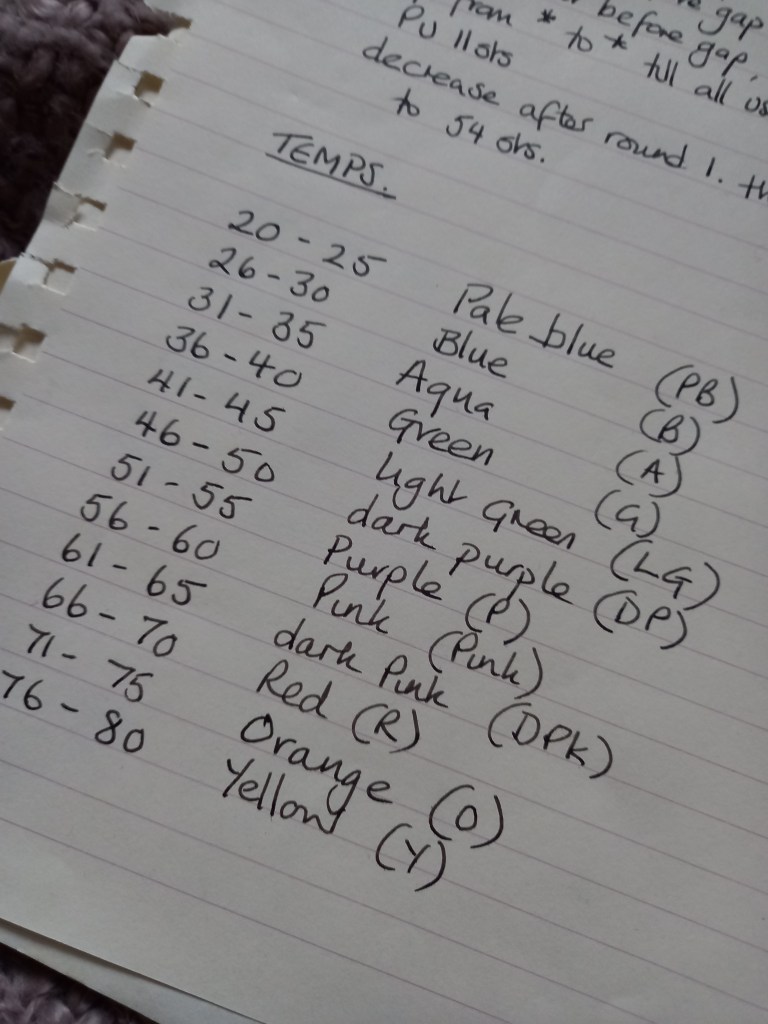 gap
before gap,
from * to * till all us
PU 11 sts
decrease after round 1. th
to 54 sts.
TEMPS.
20 - 25 Pale blue (PB)
26 - 30 Blue (B)
31 - 35 Aqua (A)
36 - 40 Green (G)
41 - 45 light Green (LG)
46 - 50 dark purple (DP)
51 - 55 Purple (P)
56 - 60 Pink (Pink)
61 - 65 dark Pink (DPK)
66 - 70 Red (R)
71 - 75 Orange (O)
76 - 80 Yellow (Y)